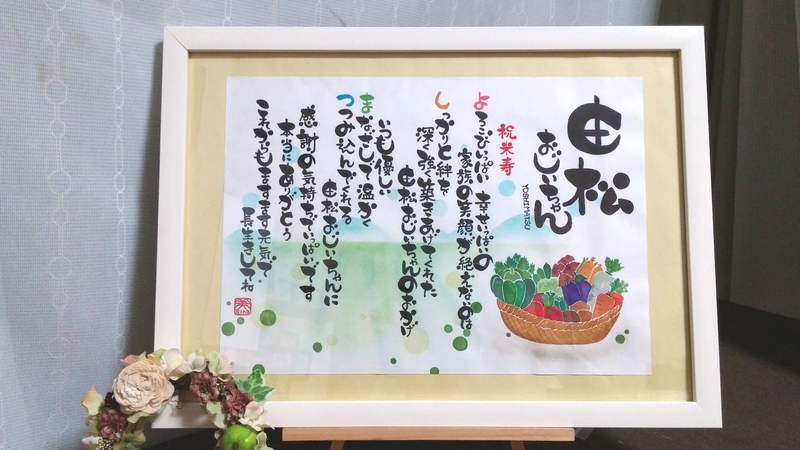 由松
おじいちゃん
YOSHIMATSU
祝米寿
よろこびいっぱい 幸せいっぱいの
家族の笑顔が絶えないのは
しっかりと絆を
深く強く築きあげてくれた
由松おじいちゃんのおかげ
いつも優しい
まなざしで温かく
つつみ込んでくれる
由松おじいちゃんに
感謝の気持ちでいっぱいです
本当にありがとう
これからもますます元気で
長生きしてね